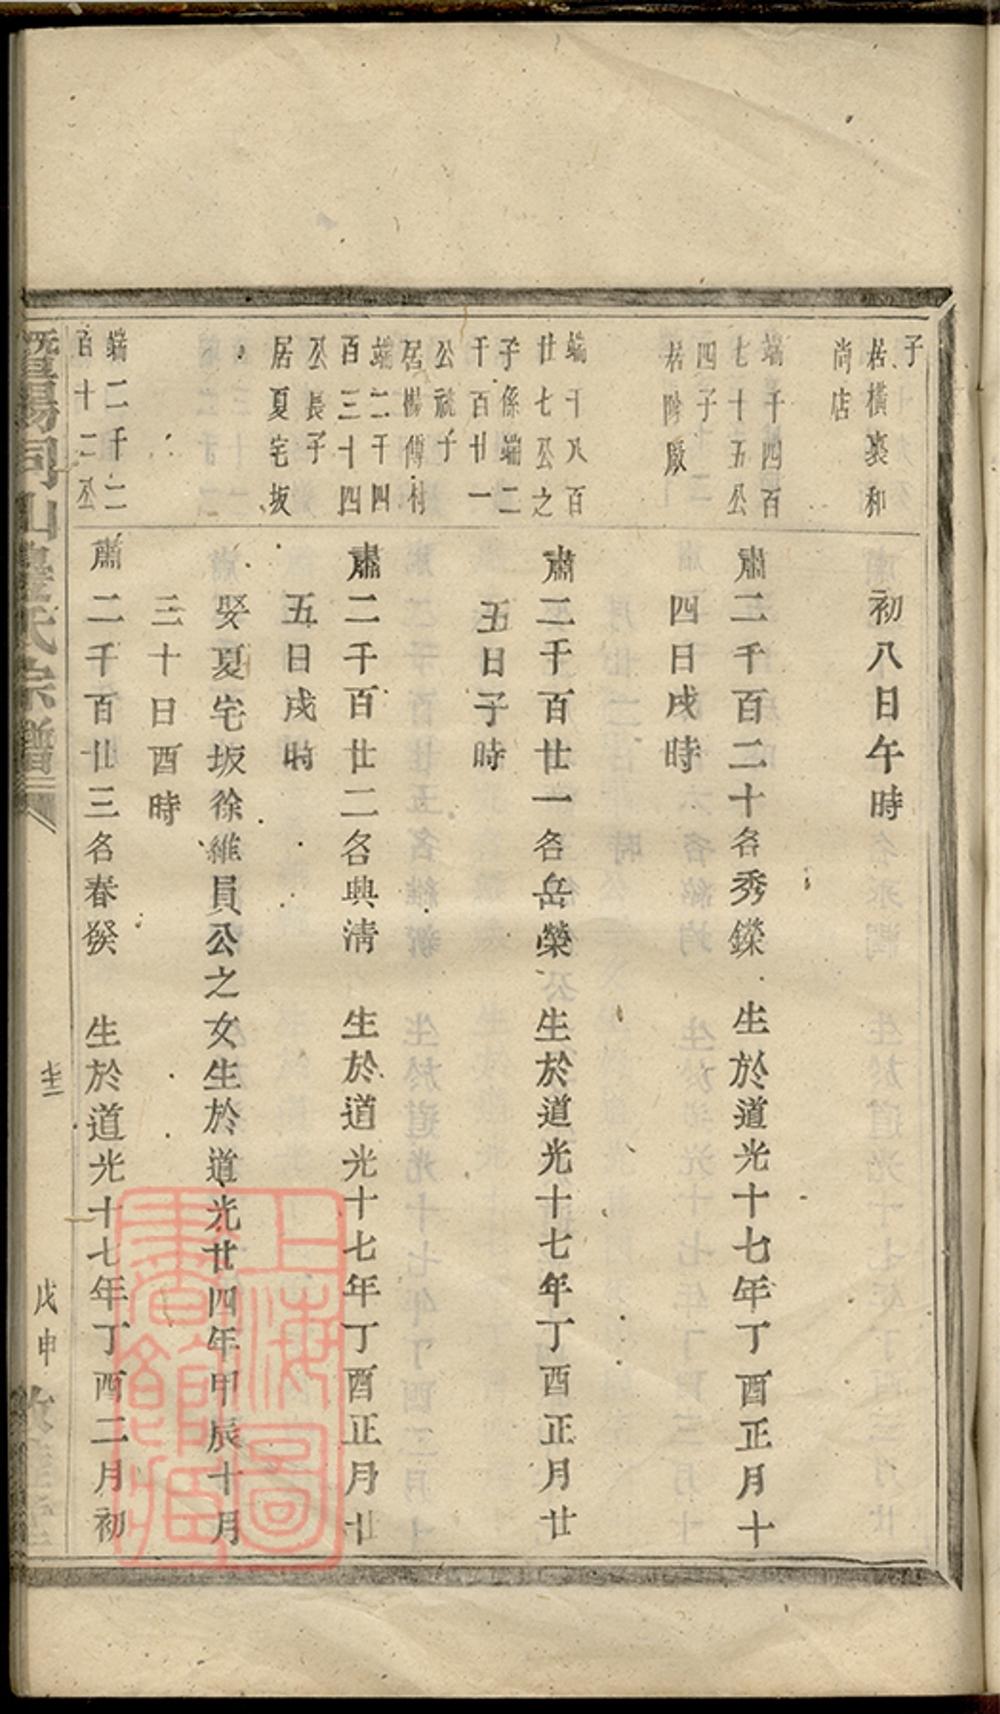 子
居橫裘和
尚店
初八日午時
端千四百
七十五公
四子
居階廠
肅二千百二十名秀鑅 生於道光十七年丁酉正月十
四日戌時
端千八百
廿七公之
子係端二
千百廿一
公祧子
居楊傅村
肅二千百廿一名岳榮 生於道光十七年丁酉正月廿
五日子時
端二千四
百三十四
公長子
居夏宅坂
肅二千百廿二名興清 生於道光十七年丁酉正月廿
五日戌時
娶夏宅坂徐維員公之女生於道光廿四年甲辰十月
三十日酉時
端二千二
百十二公
肅二千百廿三名春猴 生於道光十七年丁酉二月初
暨陽同山壽氏宗譜
戊申
上海圖書館藏